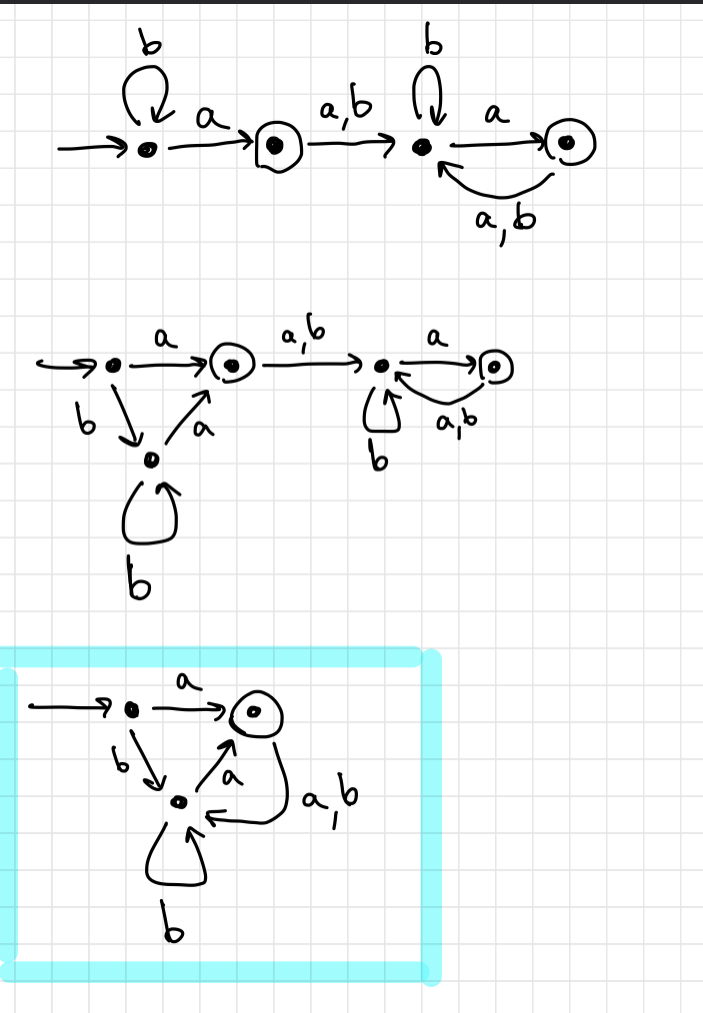 b b
a a,b a
a,b
a a,b a
b a a,b
b
b
a
b a a,b
b